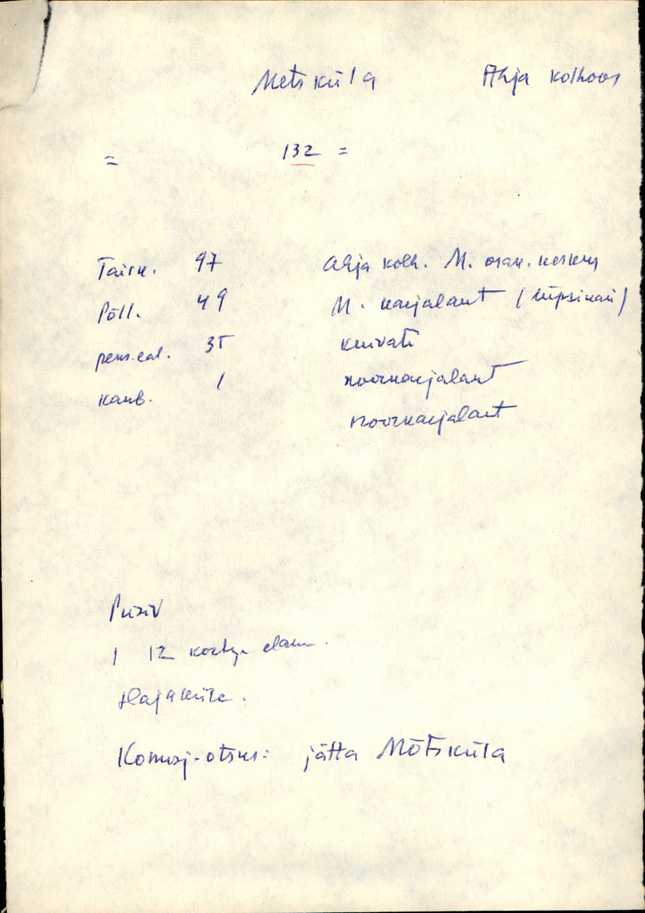 Metsküla Ahja kolhoos
= 132 =
Täisk. 97 Ahja kolh. M. osak. keskus
Põll. 49 M. karjalaut (lüpsikari)
pens.eal. 35 kuivati
kaub. 1 noorkarjalaut
noorkarjalaut
Püsiv
1 12 elam.
Hajaküla.
Komisj. otsus: jätta Mõtsküla